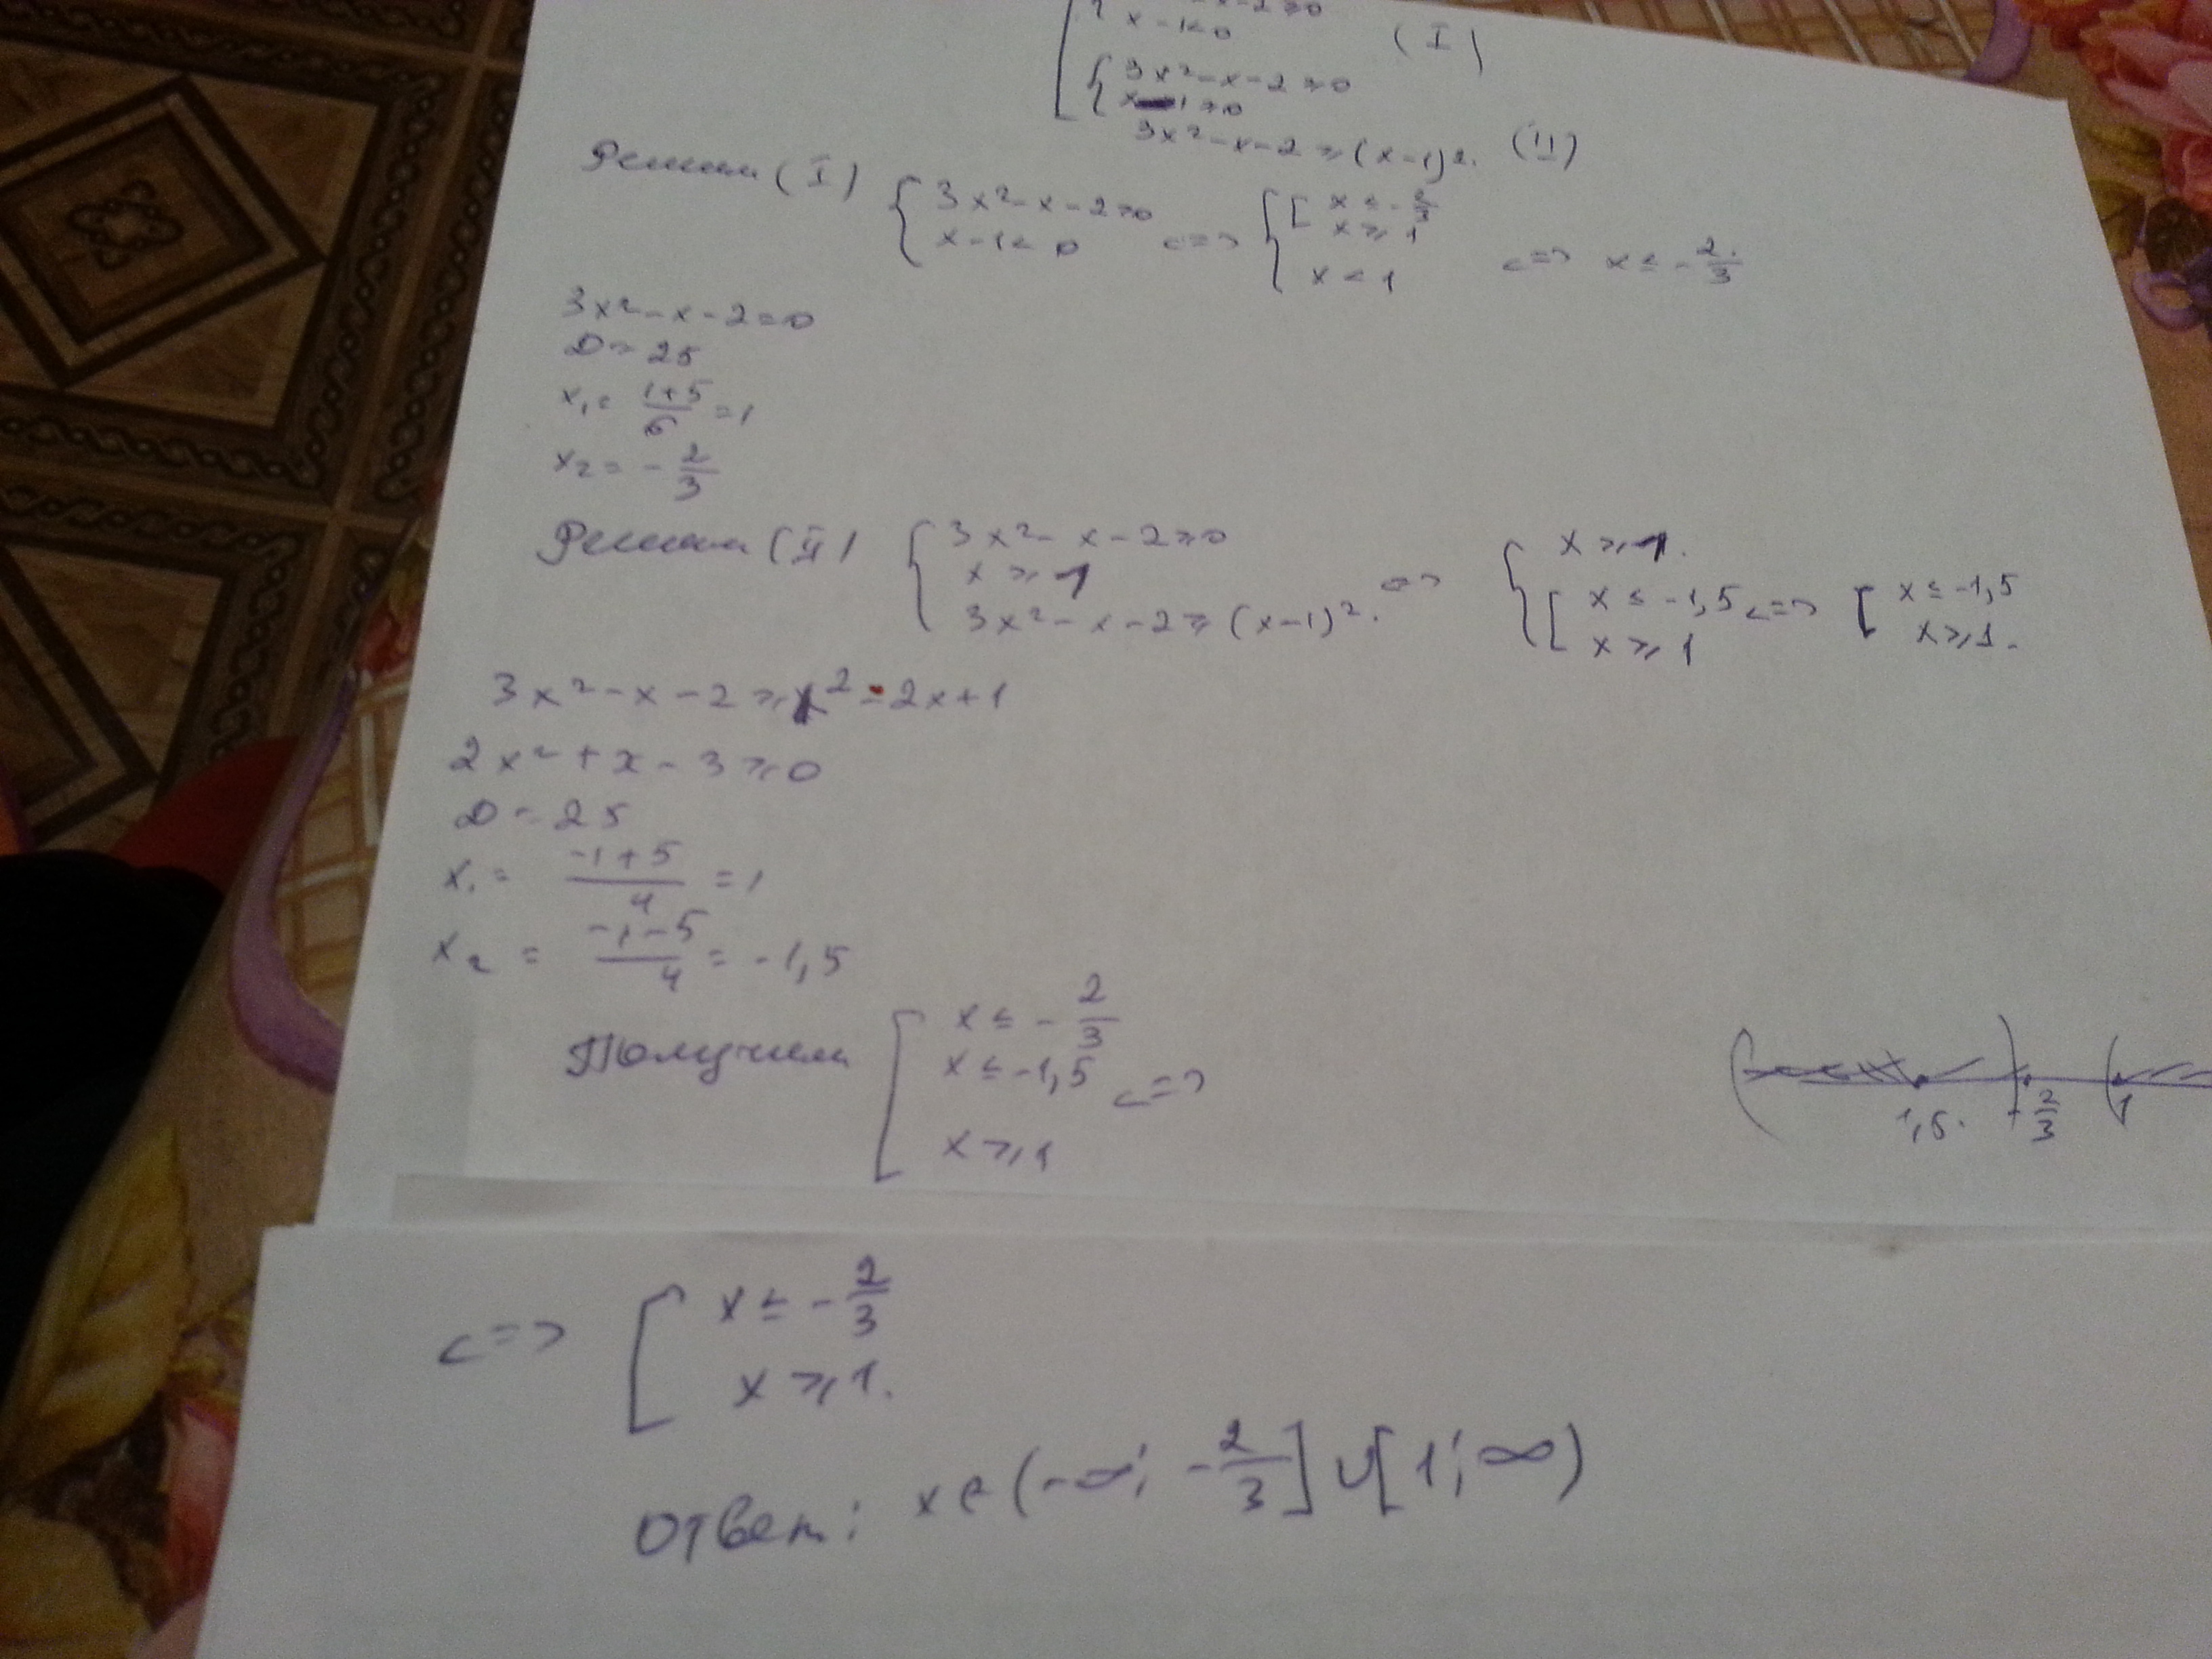 x-1<0 (I)
{3x²-x-2≥0
x-1≥0
3x²-x-2≥(x-1)². (II)
Решим (I) {3x²-x-2≥0 x-1<0 <=> {[x≤-2/3 x≥1 x<1 <=> x≤-2/3
3x²-x-2=0
D=25
x₁=(1+5)/6=1
x₂=-2/3
Решим (II) {3x²-x-2≥0 x≥1 3x²-x-2≥(x-1)². <=> {x≥1. [x≤-1,5 x≥1 <=> [x≤-1,5 x≥1.
3x²-x-2≥x²-2x+1
2x²+x-3≥0
D=25
x₁=(-1+5)/4=1
x₂=(-1-5)/4=-1,5
Получим [x≤-2/3 x≤-1,5 x≥1 <=>
1,5. -2/3 1
<=> [x≤-2/3 x≥1.
Ответ: x∈(-∞; -2/3]∪[1; ∞)